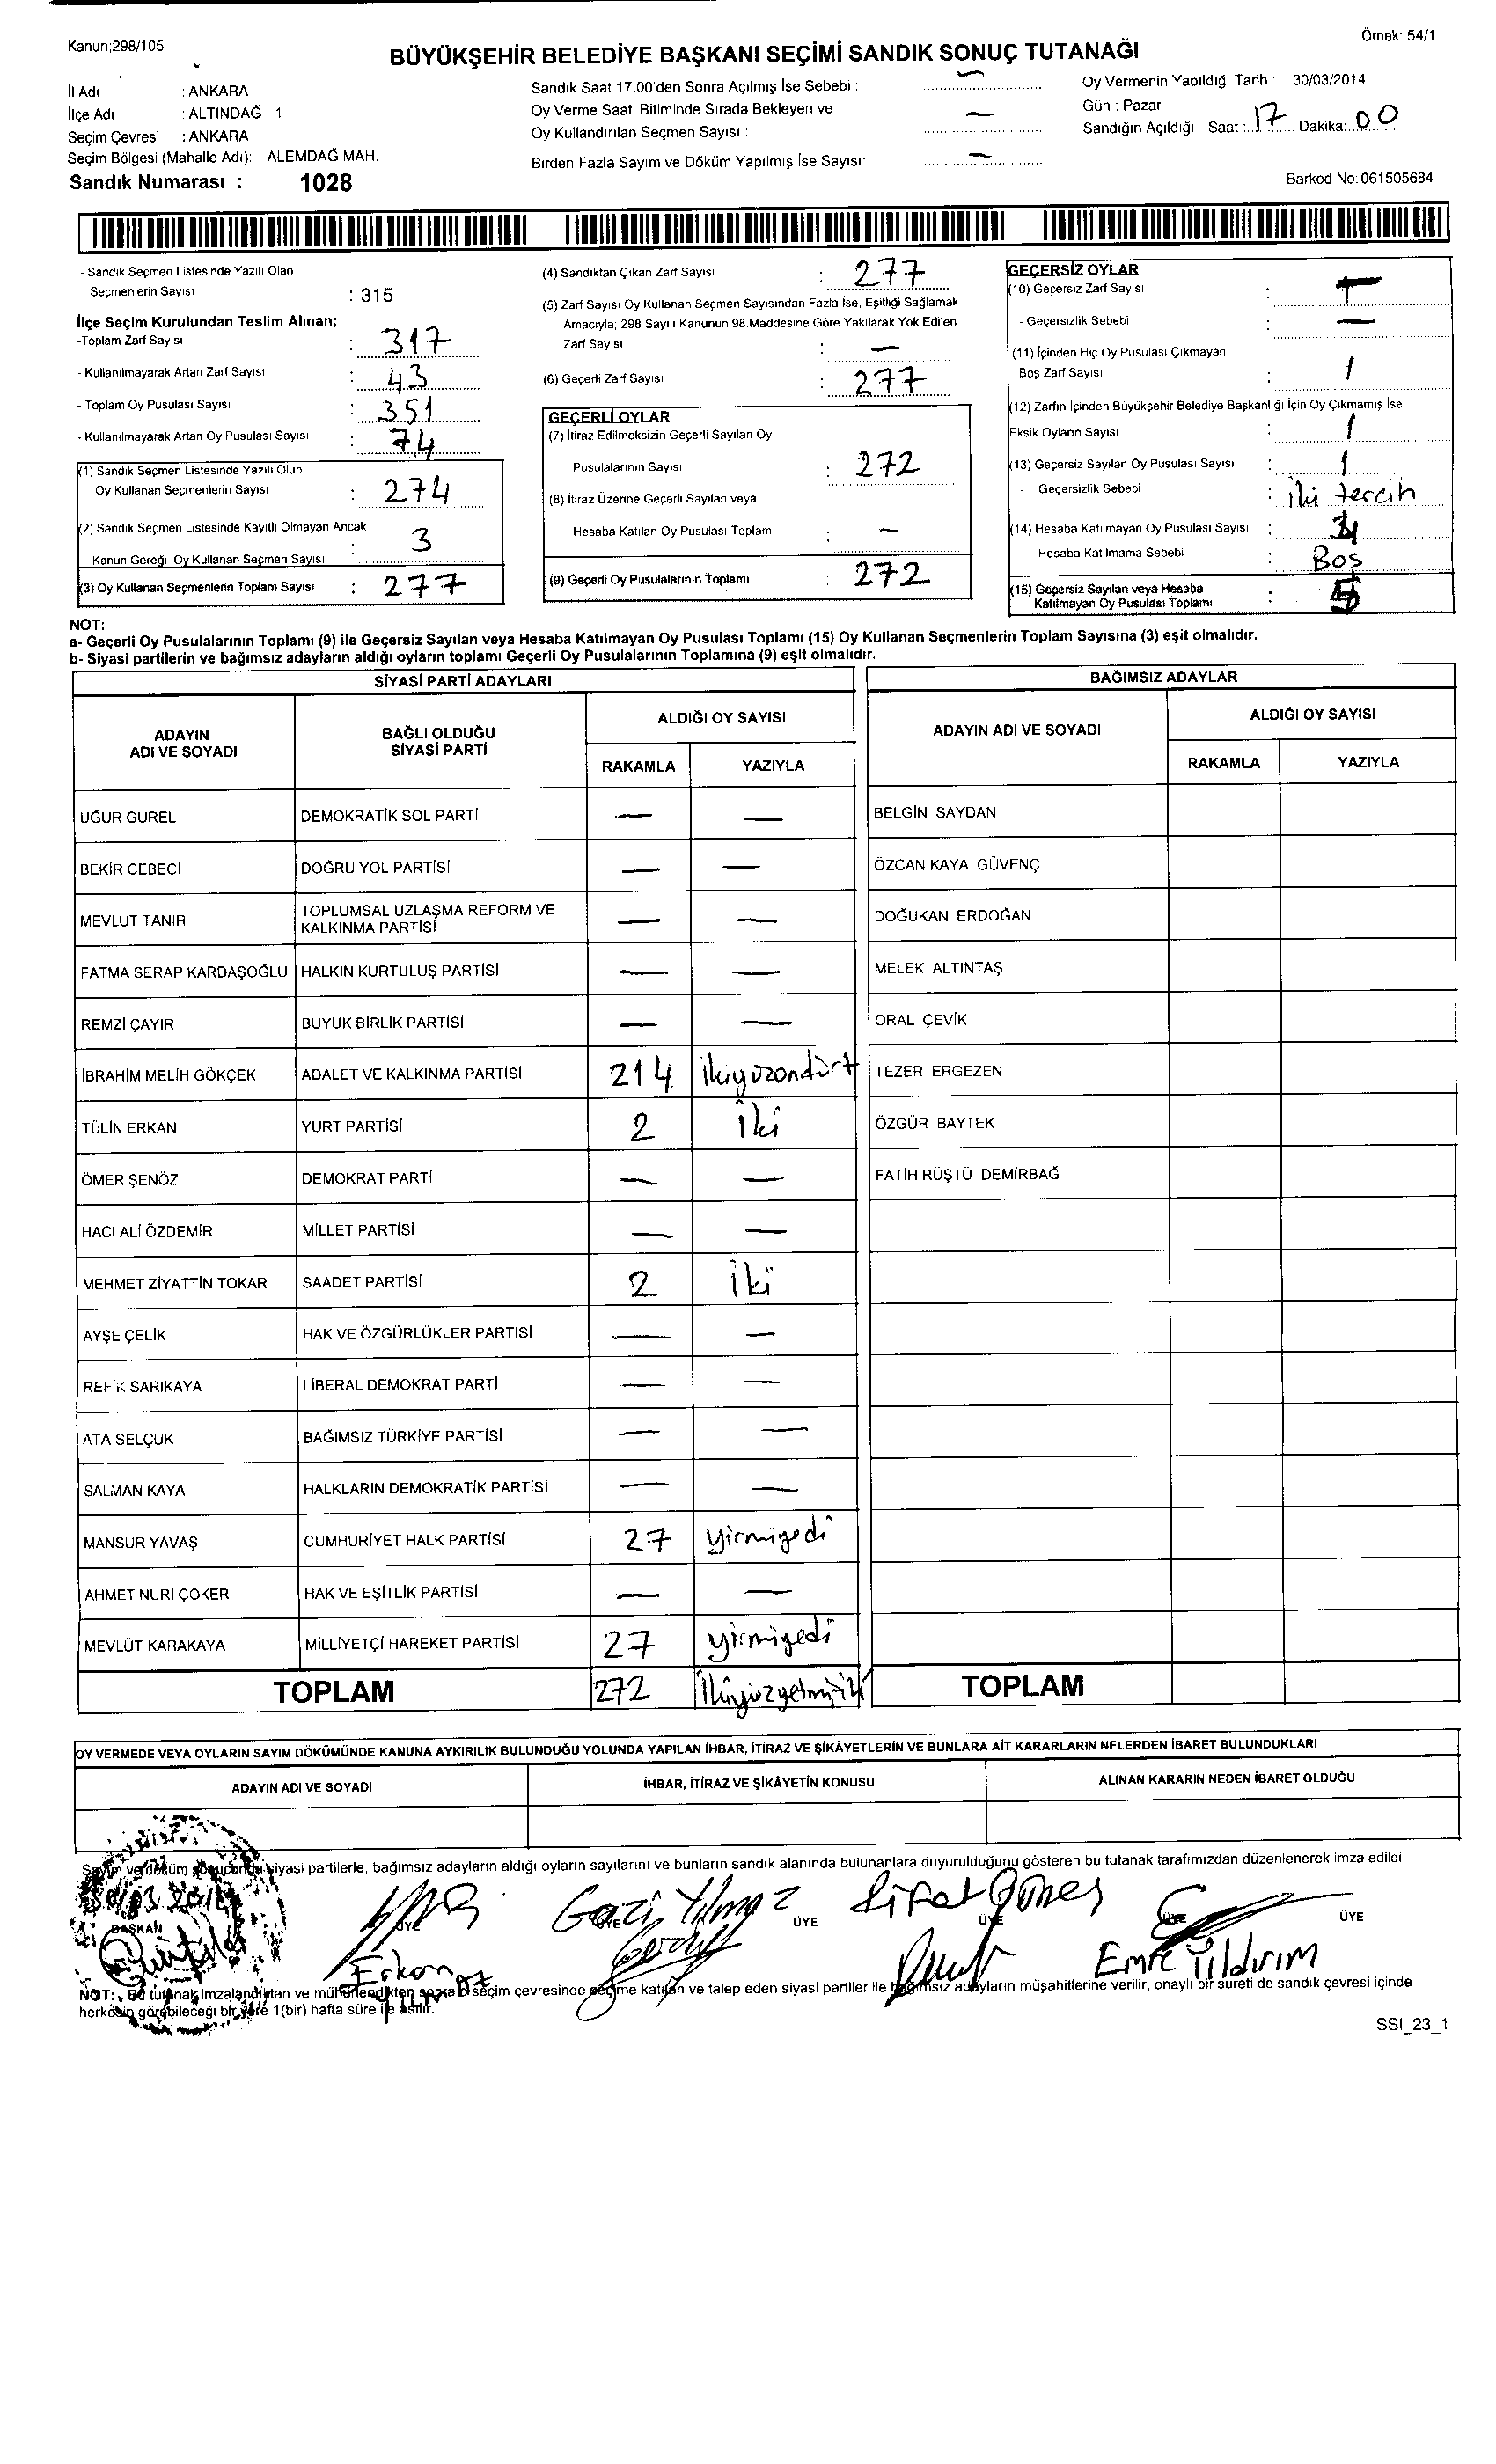 Kanun;298/105
Örnek: 54/1
BÜYÜKŞEHİR BELEDİYE BAŞKANI SEÇİMİ SANDIK SONUÇ TUTANAĞI
İl Adı : ANKARA
İlçe Adı : ALTINDAĞ - 1
Seçim Çevresi : ANKARA
Seçim Bölgesi (Mahalle Adı): ALEMDAĞ MAH.
Sandık Numarası : 1028
Sandık Saat 17.00'den Sonra Açılmış İse Sebebi : —
Oy Verme Saati Bitiminde Sırada Bekleyen ve
Oy Kullandırılan Seçmen Sayısı : —
Birden Fazla Sayım ve Döküm Yapılmış İse Sayısı: —
Oy Vermenin Yapıldığı Tarih : 30/03/2014
Gün : Pazar
Sandığın Açıldığı Saat : 17 Dakika: 00
Barkod No: 061505684
- Sandık Seçmen Listesinde Yazılı Olan
Seçmenlerin Sayısı : 315
İlçe Seçim Kurulundan Teslim Alınan;
-Toplam Zarf Sayısı : 317
- Kullanılmayarak Artan Zarf Sayısı : 43
- Toplam Oy Pusulası Sayısı : 351
- Kullanılmayarak Artan Oy Pusulası Sayısı : 74
(1) Sandık Seçmen Listesinde Yazılı Olup
Oy Kullanan Seçmenlerin Sayısı : 274
(2) Sandık Seçmen Listesinde Kayıtlı Olmayan Ancak
Kanun Gereği Oy Kullanan Seçmen Sayısı : 3
(3) Oy Kullanan Seçmenlerin Toplam Sayısı : 277
(4) Sandıktan Çıkan Zarf Sayısı : 277
(5) Zarf Sayısı Oy Kullanan Seçmen Sayısından Fazla İse, Eşitliği Sağlamak
Amacıyla; 298 Sayılı Kanunun 98.Maddesine Göre Yakılarak Yok Edilen
Zarf Sayısı : —
(6) Geçerli Zarf Sayısı : 277
GEÇERLİ OYLAR
(7) İtiraz Edilmeksizin Geçerli Sayılan Oy
Pusulalarının Sayısı : 272
(8) İtiraz Üzerine Geçerli Sayılan veya
Hesaba Katılan Oy Pusulası Toplamı : —
(9) Geçerli Oy Pusulalarının Toplamı : 272
GEÇERSİZ OYLAR
(10) Geçersiz Zarf Sayısı :
- Geçersizlik Sebebi : —
(11) İçinden Hiç Oy Pusulası Çıkmayan
Boş Zarf Sayısı : 1
(12) Zarfın İçinden Büyükşehir Belediye Başkanlığı İçin Oy Çıkmamış İse
Eksik Oyların Sayısı : 1
(13) Geçersiz Sayılan Oy Pusulası Sayısı : 1
- Geçersizlik Sebebi : iki tercih
(14) Hesaba Katılmayan Oy Pusulası Sayısı :
- Hesaba Katılmama Sebebi : Bos
(15) Geçersiz Sayılan veya Hesaba
Katılmayan Oy Pusulası Toplamı : 5
NOT:
a- Geçerli Oy Pusulalarının Toplamı (9) ile Geçersiz Sayılan veya Hesaba Katılmayan Oy Pusulası Toplamı (15) Oy Kullanan Seçmenlerin Toplam Sayısına (3) eşit olmalıdır.
b- Siyasi partilerin ve bağımsız adayların aldığı oyların toplamı Geçerli Oy Pusulalarının Toplamına (9) eşit olmalıdır.
SİYASİ PARTİ ADAYLARI
ADAYIN ADI VE SOYADI BAĞLI OLDUĞU SİYASİ PARTİ ALDIĞI OY SAYISI
RAKAMLA YAZIYLA
UĞUR GÜREL DEMOKRATİK SOL PARTİ — —
BEKİR CEBECİ DOĞRU YOL PARTİSİ — —
MEVLÜT TANIR TOPLUMSAL UZLAŞMA REFORM VE KALKINMA PARTİSİ — —
FATMA SERAP KARDAŞOĞLU HALKIN KURTULUŞ PARTİSİ — —
REMZİ ÇAYIR BÜYÜK BİRLİK PARTİSİ — —
İBRAHİM MELİH GÖKÇEK ADALET VE KALKINMA PARTİSİ 214 ikiyüzondört
TÜLİN ERKAN YURT PARTİSİ 2 iki
ÖMER ŞENÖZ DEMOKRAT PARTİ — —
HACI ALİ ÖZDEMİR MİLLET PARTİSİ — —
MEHMET ZİYATTİN TOKAR SAADET PARTİSİ 2 iki
AYŞE ÇELİK HAK VE ÖZGÜRLÜKLER PARTİSİ — —
REFİK SARIKAYA LİBERAL DEMOKRAT PARTİ — —
ATA SELÇUK BAĞIMSIZ TÜRKİYE PARTİSİ — —
SALMAN KAYA HALKLARIN DEMOKRATİK PARTİSİ — —
MANSUR YAVAŞ CUMHURİYET HALK PARTİSİ 27 yirmiyedi
AHMET NURİ ÇOKER HAK VE EŞİTLİK PARTİSİ — —
MEVLÜT KARAKAYA MİLLİYETÇİ HAREKET PARTİSİ 27 yirmiyedi
TOPLAM 272 ikiyüzyetmişiki
BAĞIMSIZ ADAYLAR
ADAYIN ADI VE SOYADI ALDIĞI OY SAYISI
RAKAMLA YAZIYLA
BELGİN SAYDAN
ÖZCAN KAYA GÜVENÇ
DOĞUKAN ERDOĞAN
MELEK ALTINTAŞ
ORAL ÇEVİK
TEZER ERGEZEN
ÖZGÜR BAYTEK
FATİH RÜŞTÜ DEMİRBAĞ
TOPLAM
OY VERMEDE VEYA OYLARIN SAYIM DÖKÜMÜNDE KANUNA AYKIRILIK BULUNDUĞU YOLUNDA YAPILAN İHBAR, İTİRAZ VE ŞİKÂYETLERİN VE BUNLARA AİT KARARLARIN NELERDEN İBARET BULUNDUKLARI
ADAYIN ADI VE SOYADI İHBAR, İTİRAZ VE ŞİKÂYETİN KONUSU ALINAN KARARIN NEDEN İBARET OLDUĞU
Sayım ve döküm sonucunda siyasi partilerle, bağımsız adayların aldığı oyların sayılarını ve bunların sandık alanında bulunanlara duyurulduğunu gösteren bu tutanak tarafımızdan düzenlenerek imza edildi.
30/03/2014
BAŞKAN ÜYE ÜYE ÜYE ÜYE ÜYE ÜYE
Gazi Yılmaz
Sıfat Güneş
Erkan
Emre Yıldırım
NOT: Bu tutanak imzalandıktan ve mühürlendikten sonra seçim çevresinde seçime katılan ve talep eden siyasi partiler ile bağımsız adayların müşahitlerine verilir, onaylı bir sureti de sandık çevresi içinde
herkesin görebileceği bir yere 1(bir) hafta süre ile asılır.
SSI_23_1